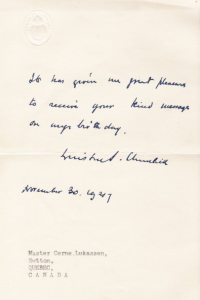 It has given me great pleasure
to receive your kind message
on my birthday.
Winston S. Churchill
November 30. 1947
Master Carne.Lokassen,
Sutton,
QUEBEC,
C A N A D A